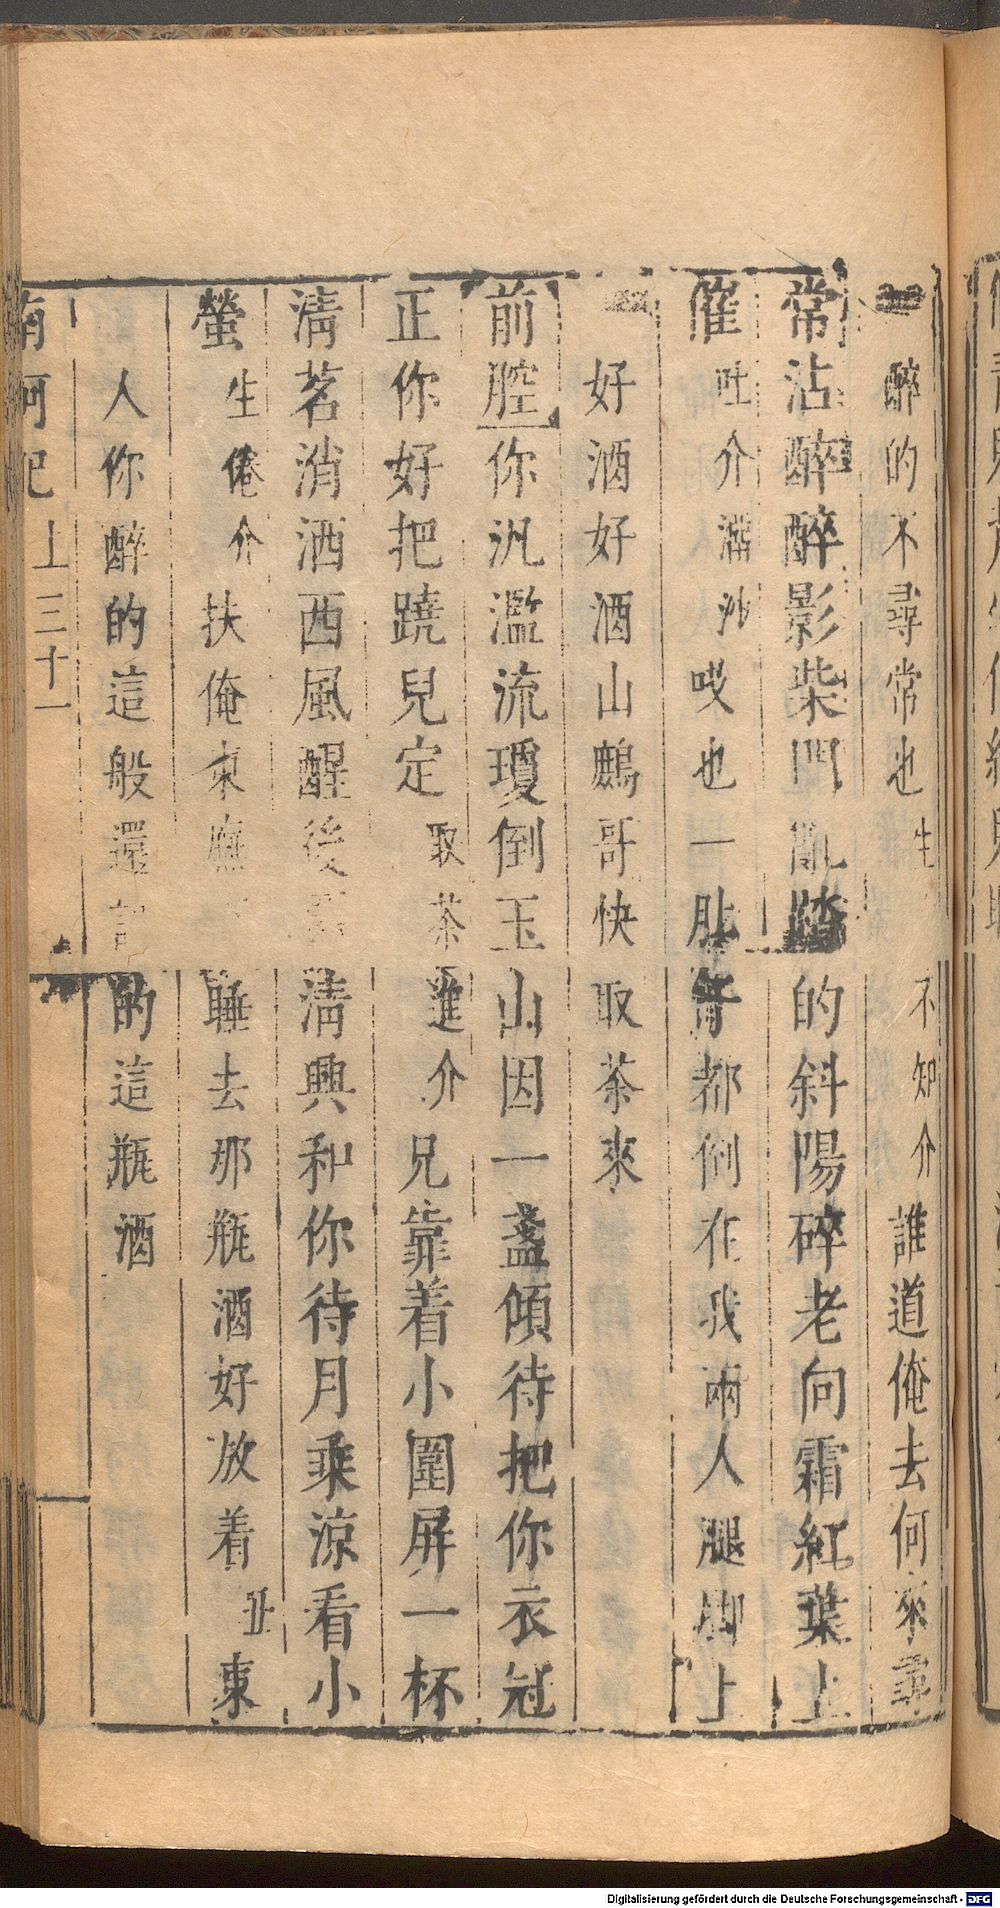 醉的不尋常也生不知介誰道俺去何來尋
常沾醉醉影柴門亂踏的斜陽碎老向霜紅葉上
催吐介瀟沙哎也一肚醡都倒在我兩人腿脚上
好酒好酒山鷓哥快取茶來
前腔你汎濫流瓊倒玉山因一盞傾待把你衣冠
正你好把蹺兒定取茶進介兄靠着小圍屏一杯
清茗消洒西風醒後清興和你待月乘涼看小
螢生倦介扶俺東廡睡去那瓶酒好放着丑東
人你醉的這般還記的這瓶酒
南柯記 上 三十一
Digitalisierung gefördert durch die Deutsche Forschungsgemeinschaft - DFG